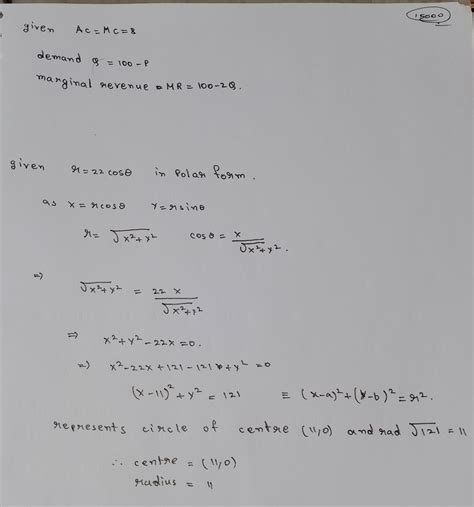 15000
given AC = MC = 8
demand Q = 100 - P
marginal revenue = MR = 100 - 2Q.
given r = 22 cosθ in Polar form.
as x = r cosθ Y = r sinθ
r = √x²+Y² cosθ = x/√x²+y².
=) √x²+y² = 22 x/√x²+y²
⇒ x²+y²-22x = 0.
=) x²-22x+121-121+y² = 0
(x-11)²+y² = 121 ≡ (x-a)²+(y-b)² = r².
represents circle of centre (11,0) and rad √121 = 11
∴ centre = (11,0)
radius = 11